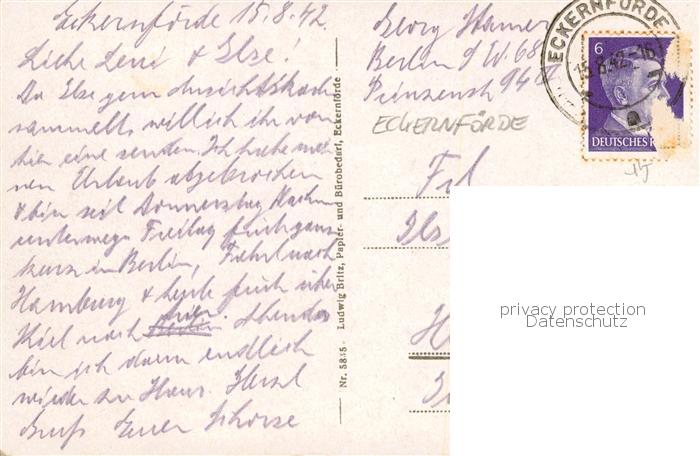 Eckernförde 15.8.42.
Liebe Leni & Else!
Da Else gern Ansichtskarten
sammelt, will ich ihr von
hier eine senden. Ich habe mei-
nen Urlaub abgebrochen
& bin seit Donnerstag Nachm
unterwegs Freitag früh ganz
kurz in Berlin, Fahrt nach
Hamburg & heute früh über
Kiel nach hier Abends
bin ich dann endlich
wieder zu Haus. Herzl
Gruß Euer Schorse
Georg Hamer
Berlin SW.68
Prinzenstr 94 II
ECKERNFÖRDE
Frl
Nr. 5835 - Ludwig Britz, Papier- und Bürobedarf, Eckernförde
ECKERNFÖRDE
15.8.42.-16
a
6
DEUTSCHES R
privacy protection
Datenschutz